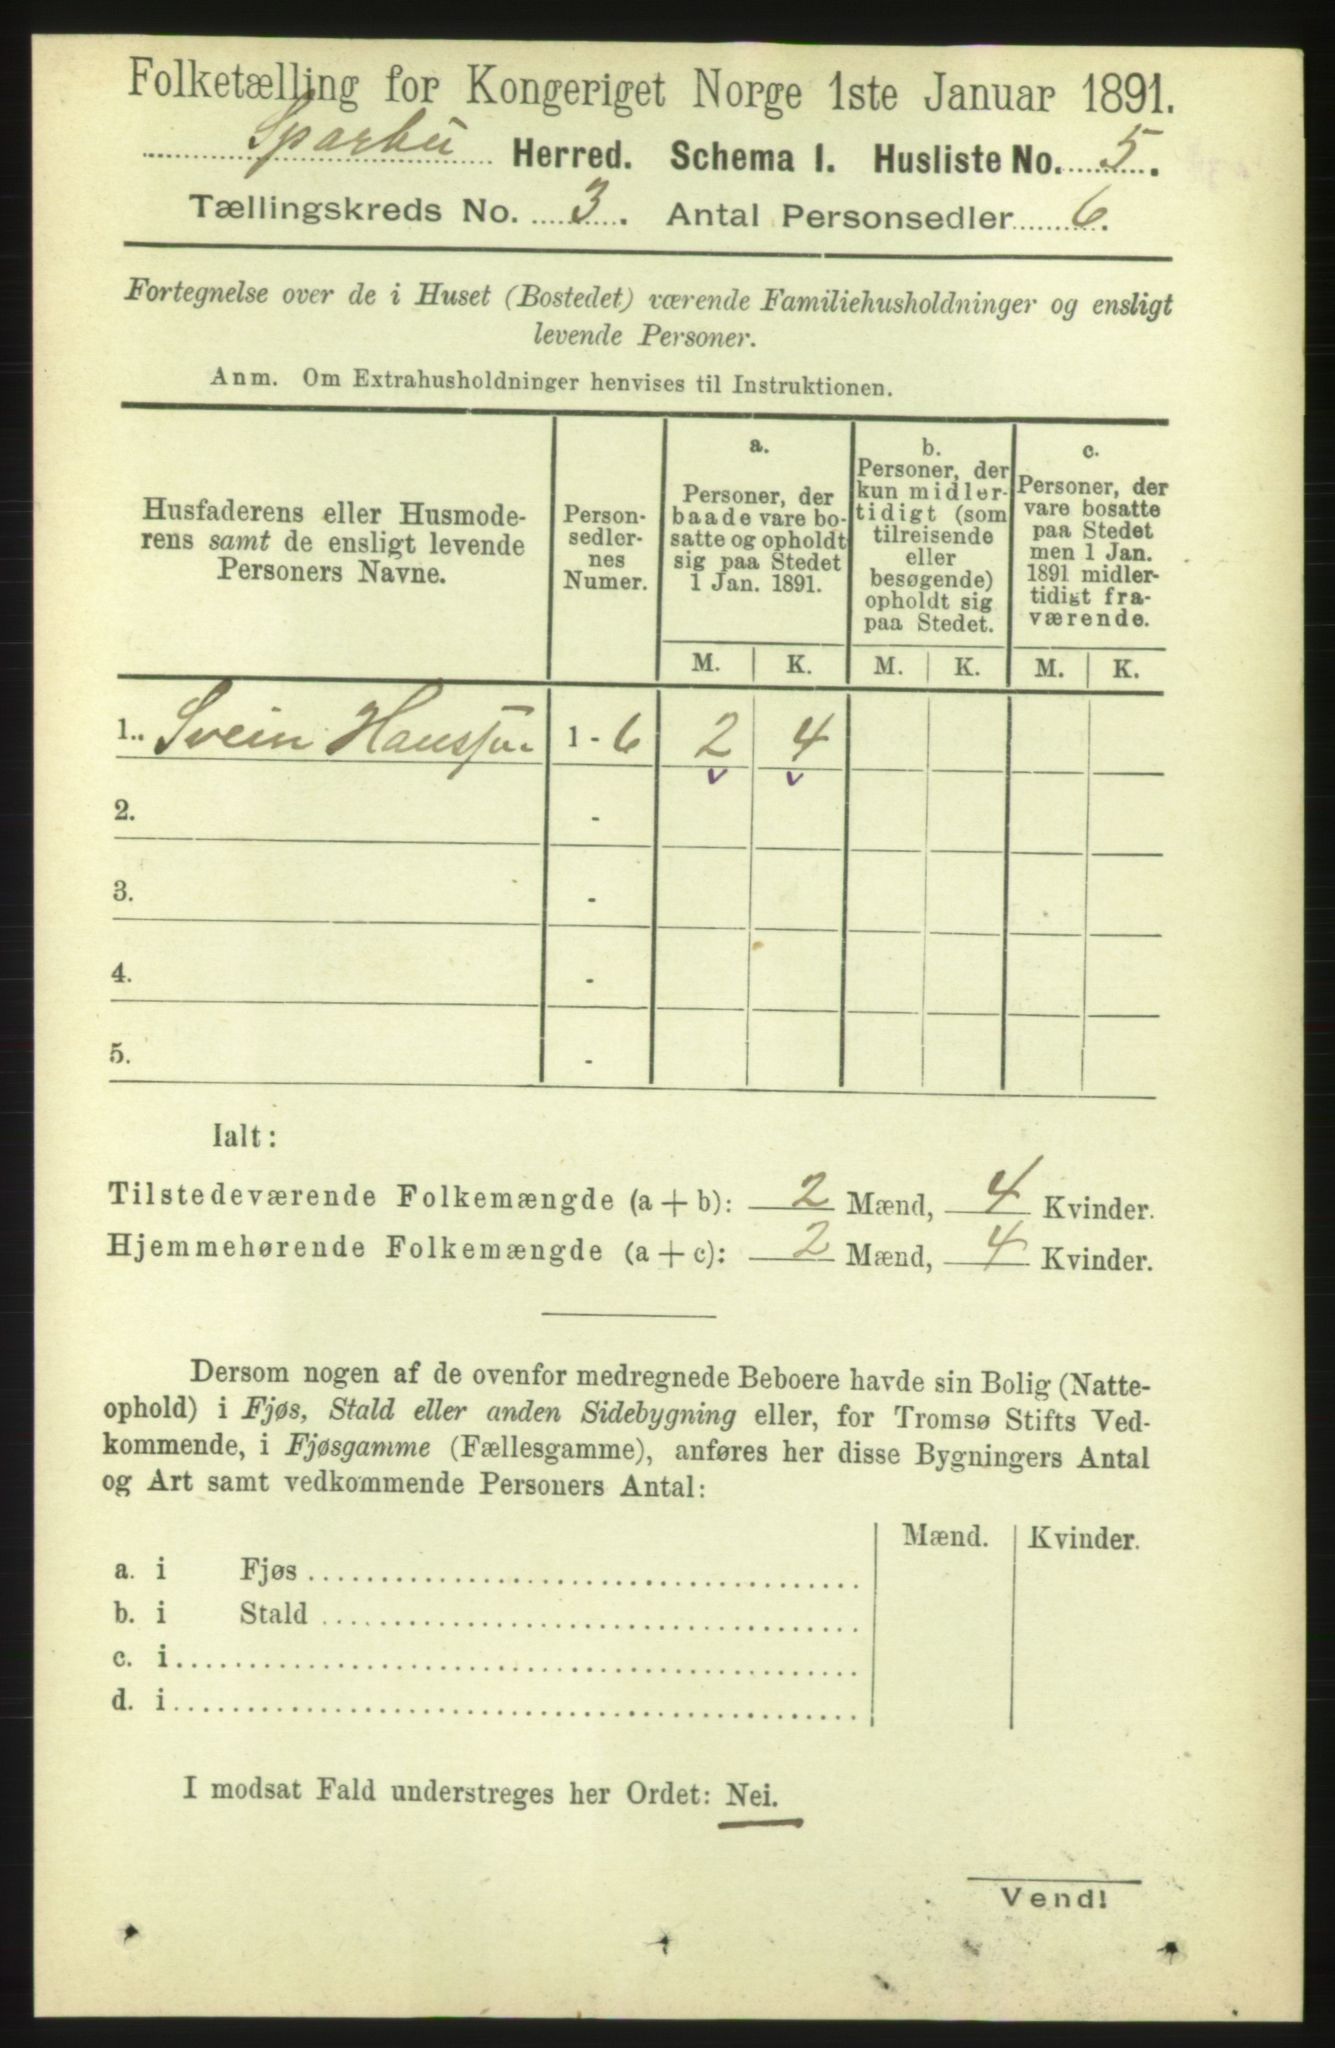 Folketælling for Kongeriget Norge 1ste Januar 1891.
Sparbu Herred. Schema I. Husliste No. 5.
Tællingskreds No. 3. Antal Personsedler 6.
Fortegnelse over de i Huset (Bostedet) værende Familiehusholdninger og ensligt
levende Personer.
Anm. Om Extrahusholdninger henvises til Instruktionen.
Husfaderens eller Husmode-
rens samt de ensligt levende
Personers Navne.
Person-
sedler-
nes
Numer.
a.
Personer, der
baade vare bo-
satte og opholdt
sig paa Stedet
1 Jan. 1891.
b.
Personer, der
kun midler-
tidigt (som
tilreisende
eller
besøgende)
opholdt sig
paa Stedet.
c.
Personer, der
vare bosatte
paa Stedet
men 1 Jan.
1891 midler-
tidigt fra-
værende.
M. K. M. K. M. K.
1. Svein Hansen 1 - 6 2 4
2. -
3. -
4. -
5. -
Ialt:
Tilstedeværende Folkemængde (a + b): 2 Mænd, 4 Kvinder.
Hjemmehørende Folkemængde (a + c): 2 Mænd, 4 Kvinder.
Dersom nogen af de ovenfor medregnede Beboere havde sin Bolig (Natte-
ophold) i Fjøs, Stald eller anden Sidebygning eller, for Tromsø Stifts Ved-
kommende, i Fjøsgamme (Fællesgamme), anføres her disse Bygningers Antal
og Art samt vedkommende Personers Antal:
Mænd. Kvinder.
a. i Fjøs
b. i Stald
c. i
d. i
I modsat Fald understreges her Ordet: Nei.
Vend!